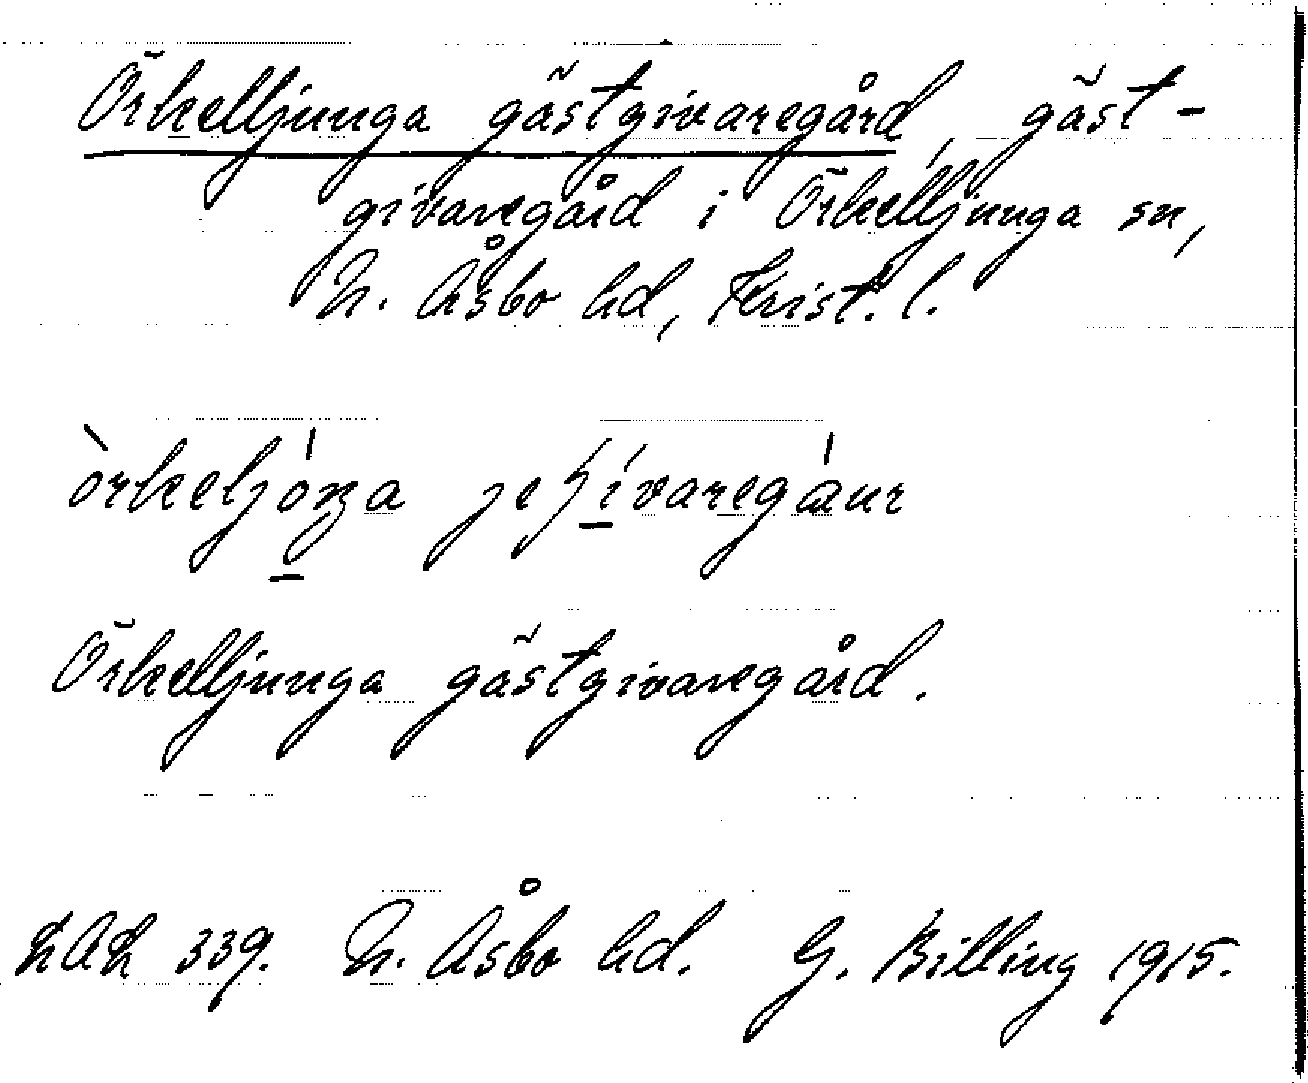 Örkelljunga gästgivaregård, gäst-
givaregård i Örkelljunga sn,
N. Åsbo hd, Krist. l.
Örkelljunga gästgivaregård.
LAL 339. N. Åsbo hd. G. Billing 1915.